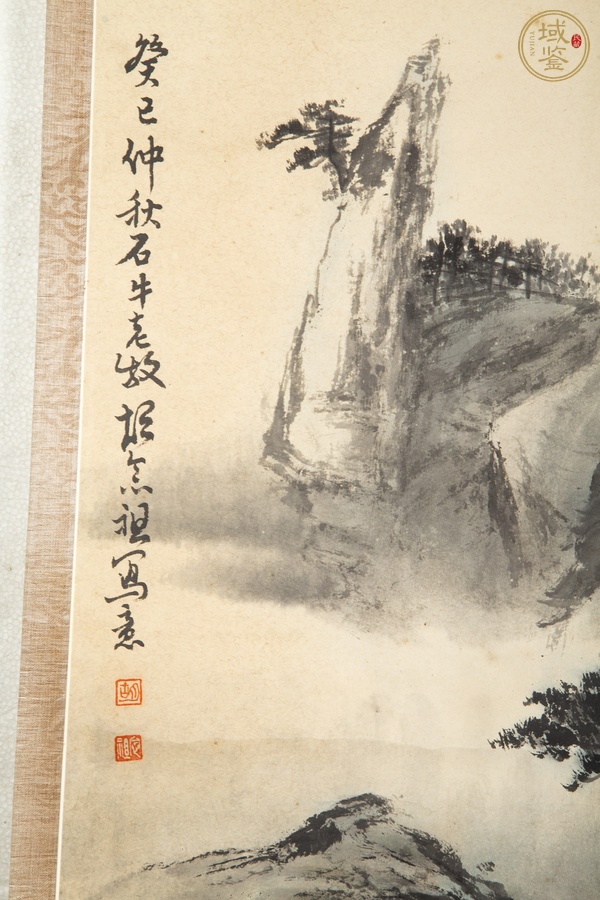 癸巳仲秋石牛老牧胡念祖写意
域鉴
YUJIAN